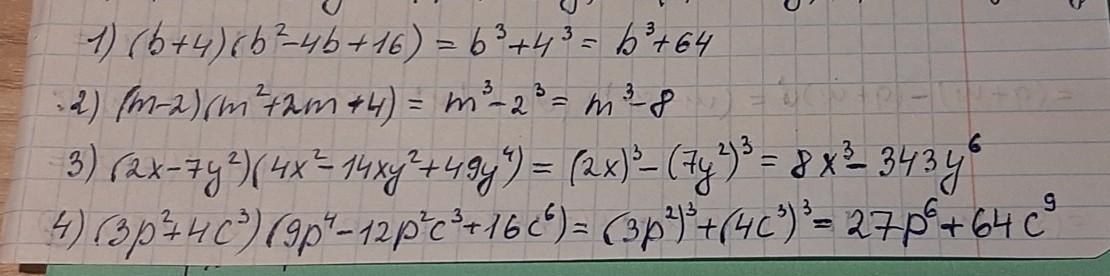 1) (b+4)(b²-4b+16) = b³+4³ = b³+64
2) (m-2)(m²+2m+4) = m³-2³ = m³-8
3) (2x-7y²)(4x²-14xy²+49y⁴) = (2x)³-(7y²)³ = 8x³-343y⁶
4) (3p²+4c³)(9p⁴-12p²c³+16c⁶) = (3p²)³+(4c³)³ = 27p⁶+64c⁹